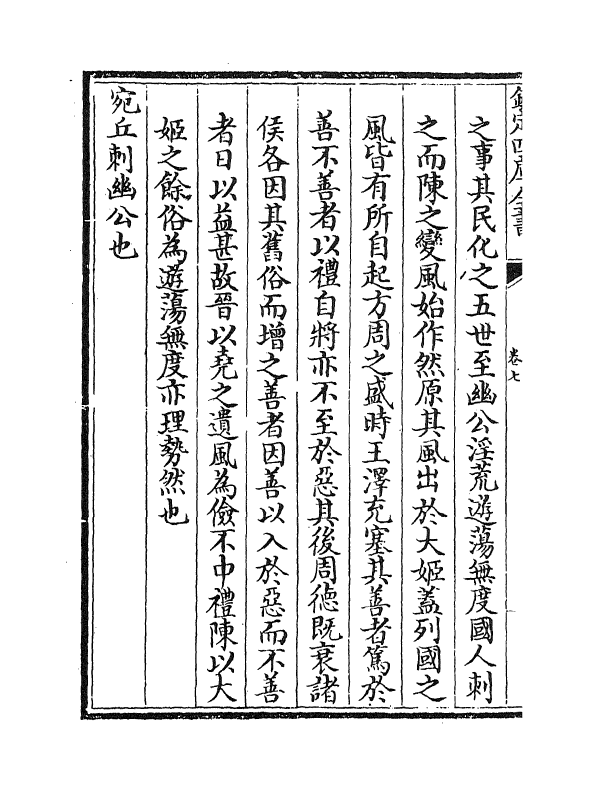 欽定四庫全書
卷七
之事其民化之五世至幽公淫荒遊蕩無度國人刺
之而陳之變風始作然原其風出於大姬蓋列國之
風皆有所自起方周之盛時王澤充塞其善者篤於
善不善者以禮自將亦不至於惡其後周德既衰諸
侯各因其舊俗而增之善者因善以入於惡而不善
者日以益甚故晉以堯之遺風為儉不中禮陳以大
姬之餘俗為遊蕩無度亦理勢然也
宛丘刺幽公也